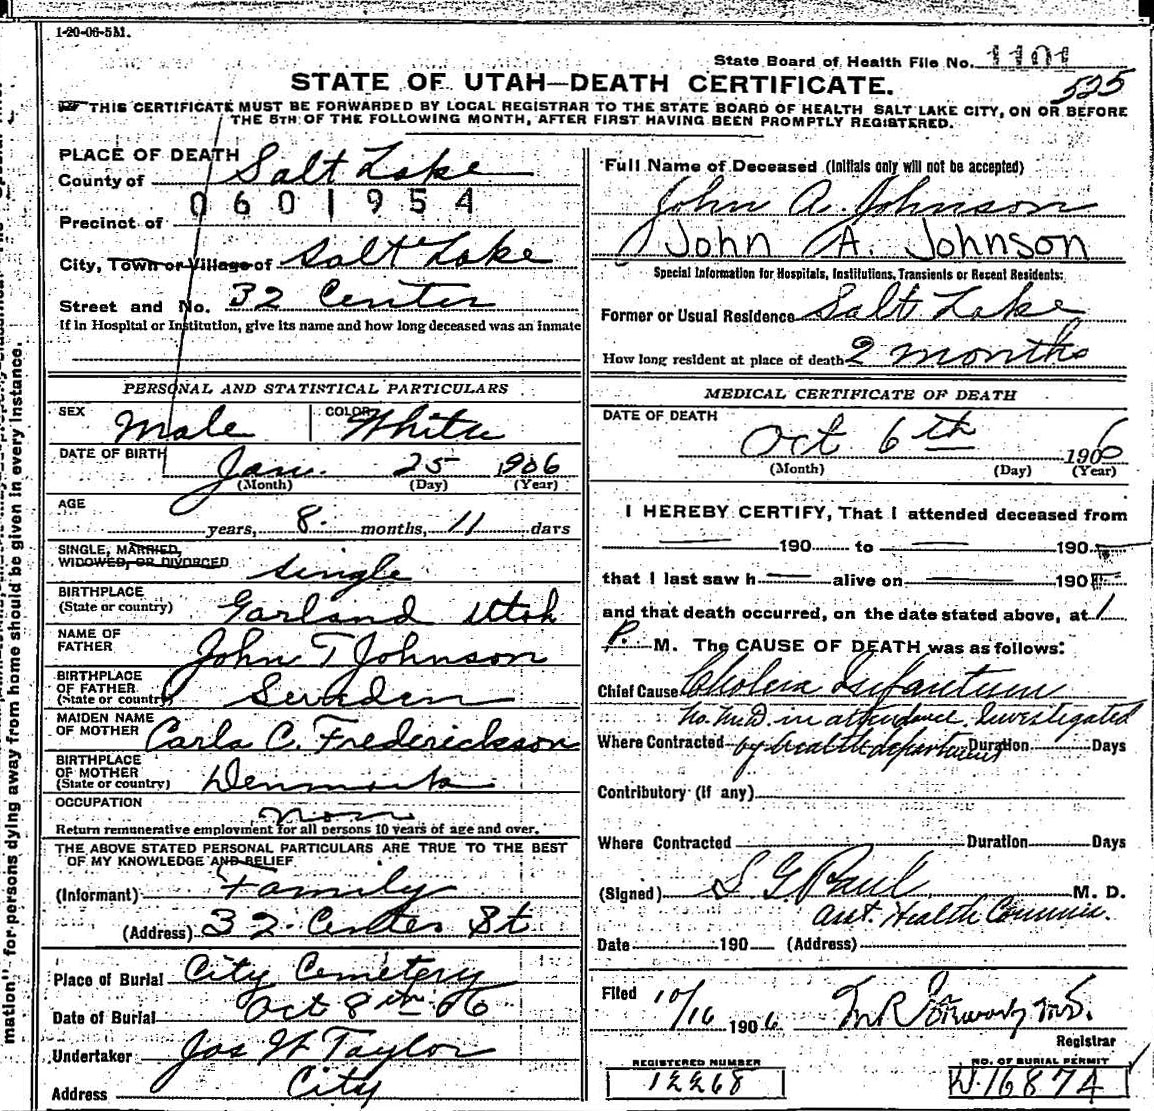 1-20-06-5M.
State Board of Health File No. 1101
STATE OF UTAH—DEATH CERTIFICATE.
525
THIS CERTIFICATE MUST BE FORWARDED BY LOCAL REGISTRAR TO THE STATE BOARD OF HEALTH SALT LAKE CITY, ON OR BEFORE
THE 5TH OF THE FOLLOWING MONTH, AFTER FIRST HAVING BEEN PROMPTLY REGISTERED.
PLACE OF DEATH
County of Salt Lake
0601954
Precinct of
City, Town or Village of Salt Lake
Street and No. 32 Center
If in Hospital or Institution, give its name and how long deceased was an inmate
PERSONAL AND STATISTICAL PARTICULARS
SEX Male COLOR White
DATE OF BIRTH Jan. 25 1906
(Month) (Day) (Year)
AGE
years, 8 months, 11 days
SINGLE, MARRIED,
WIDOWED, OR DIVORCED single
BIRTHPLACE
(State or country) Garland Utah
NAME OF
FATHER John T Johnson
BIRTHPLACE
OF FATHER
(State or country) Sweden
MAIDEN NAME
OF MOTHER Carla C. Frederickson
BIRTHPLACE
OF MOTHER
(State or country) Denmark
OCCUPATION
Return remunerative employment for all persons 10 years of age and over.
THE ABOVE STATED PERSONAL PARTICULARS ARE TRUE TO THE BEST
OF MY KNOWLEDGE AND BELIEF
(Informant) Family
(Address) 32 Center St
Place of Burial City Cemetery
Date of Burial Oct 8th 06
Undertaker Jos W Taylor
Address City
Full Name of Deceased (Initials only will not be accepted)
John A. Johnson
John A. Johnson
Special Information for Hospitals, Institutions, Transients or Recent Residents:
Former or Usual Residence Salt Lake
How long resident at place of death 2 months
MEDICAL CERTIFICATE OF DEATH
DATE OF DEATH
Oct 6th 1906
(Month) (Day) (Year)
I HEREBY CERTIFY, That I attended deceased from
190 to 190
that I last saw h alive on 190
and that death occurred, on the date stated above, at 1
P. M. The CAUSE OF DEATH was as follows:
Chief Cause Cholera Infantum
No M.D. in attendance. Investigated
Where Contracted by health department Duration Days
Contributory (if any)
Where Contracted Duration Days
(Signed) S G Paul M. D.
Asst. Health Commis.
Date 190 (Address)
Filed 10/16 1906
Registrar
REGISTERED NUMBER
12268
NO. OF BURIAL PERMIT
16874
mation" for persons dying away from home should be given in every instance.